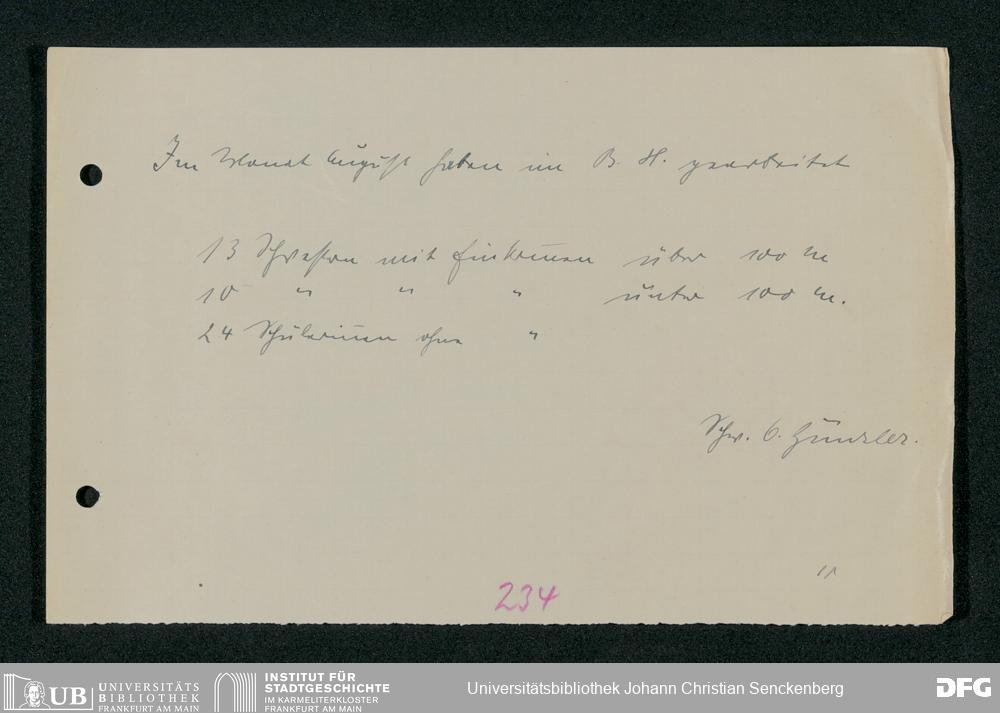 Im Monat August haben im B. H. gearbeitet
13 Schwestern mit Einkommen über 100 M
10 " " " unter 100 M.
24 Schülerinnen ohne "
Schw.
234
UB UNIVERSITÄTS
BIBLIOTHEK
FRANKFURT AM MAIN
INSTITUT FÜR
STADTGESCHICHTE
IM KARMELITERKLOSTER
FRANKFURT AM MAIN
Universitätsbibliothek Johann Christian Senckenberg
DFG